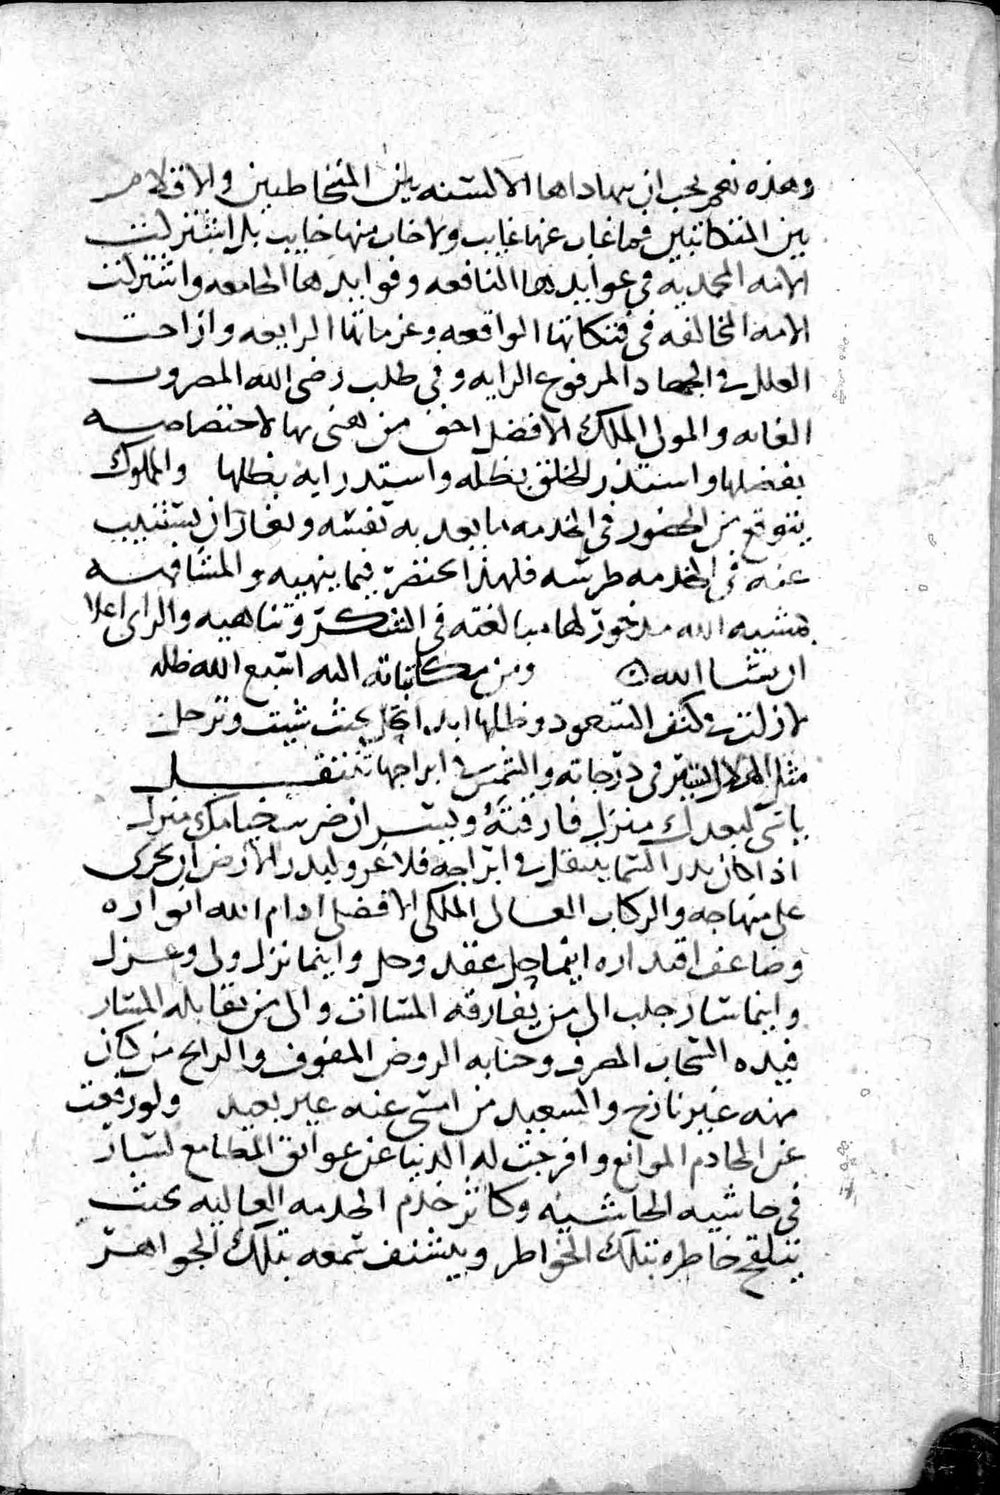 وهذه نعم يجب ان يهاداها الالسنه بين المتخاطبين والاقلام
بين المتكاتبين فما غاب عنها غايب ولا خاب منها خايب بل اشتركت
الامه المحمديه في عوايدها النافعه وفوايدها الجامعه واشتركت
الامه المخالفه في فتكاتها الواقعه وعزماتها الرايعه وازاحت
العلل في الجهاد المرفوع الرايه وفي طلب رضى الله المصروف
الغايه والمولى الملك الافضل احق من هني بها لاختصاصه
بفضلها واستذر الخلق بظله واستدرايه بظلها والمملوك
يتوقع من الحضور في الخدمه ما يعد به نفسه ويغار ان يستنيب
عنه في الخدمه طرسه فلهذا اختصر فيما ينهيه والمشافهه
بمشيه الله مدخور لها مبالغته في الشكر وتناهيه والراي اعلا
ان شا الله ومن مكاتباته اليه اسبغ الله ظله
لا زلت في كنف السعود وظلها ابدا تحل بحيث شيت وترحل
مثل الهلال النير في درجاته والشمس في ابراجها تتنقل
ياسى لبعدك منزل فارقته ويسر ان ضربت خيامك منزل
اذا كان بدر السما يتنقل في ابراجه فلا غرو لبدر الارض ان يجري
على منهاجه والركاب العالي الملكي الافضلي ادام الله انواره
وضاعف اقتداره اينما حل عقد وحل واينما نزل ولى وعزل
واينما سار جلب الى من يفارقه المساات والى من يقابله المسار
فيده السحاب المصرف وجنابه الروض المفوف والرابح من كان
منه غير نازح والسعيد من امسى عنه غير بعيد ولو رفعت
عن الخادم الموانع وافرجت له الدنيا عن عوايق المطامع لسار
في حاشيه الحاشيه وكاثر خدم الخدمه العاليه بحيث
يتلقح خاطره بتلك الخواطر ويتشنف سمعه بتلك الجواهر